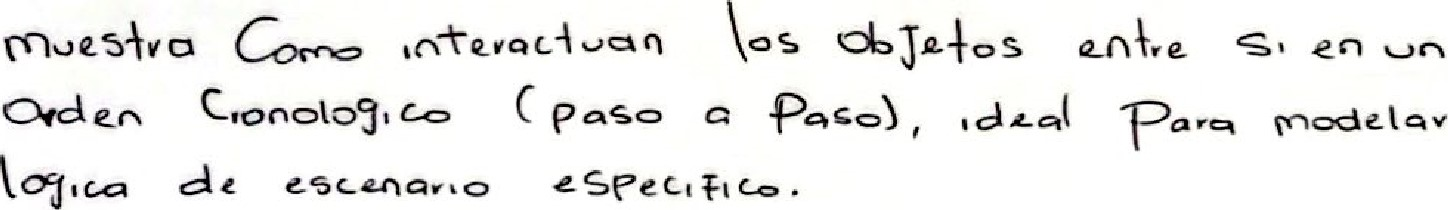 muestra Como interactuan los objetos entre si en un
Orden Cronologico (paso a Paso), ideal Para modelar
logica de escenario especifico.